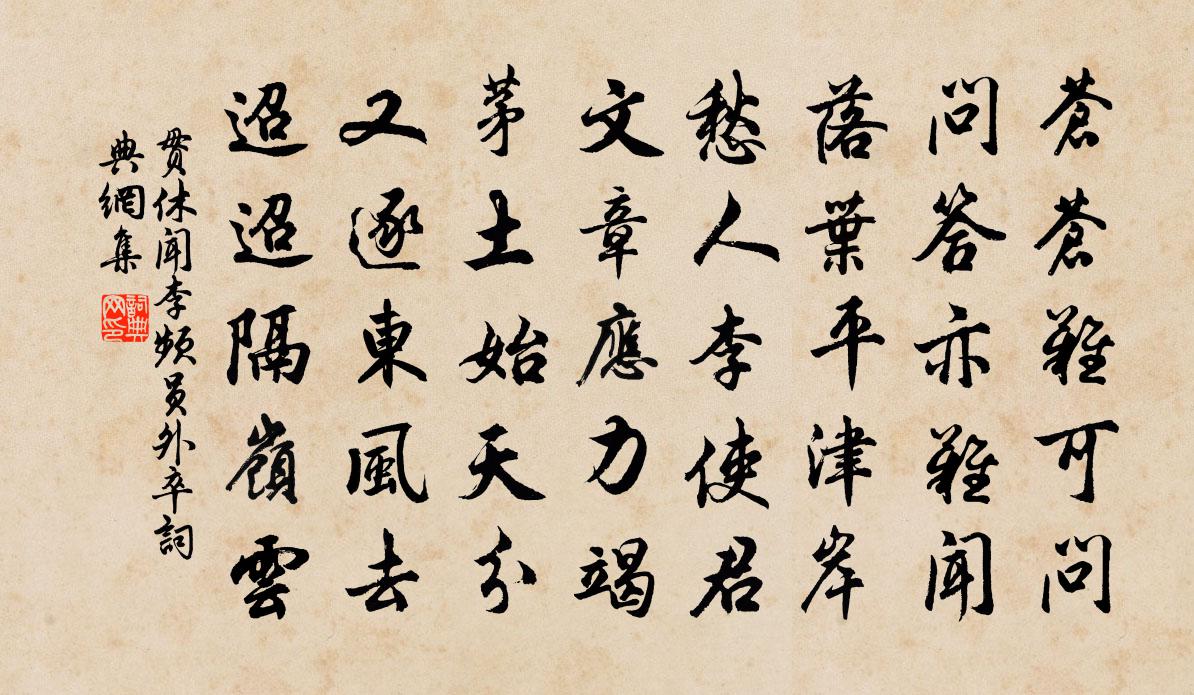 蒼蒼難可問
問答亦難聞
落葉平津岸
愁人李使君
文章應力竭
茅土始天分
又逐東風去
迢迢隔嶺雲
貫休聞李頻員外卒詞
典網集
詞典
网印